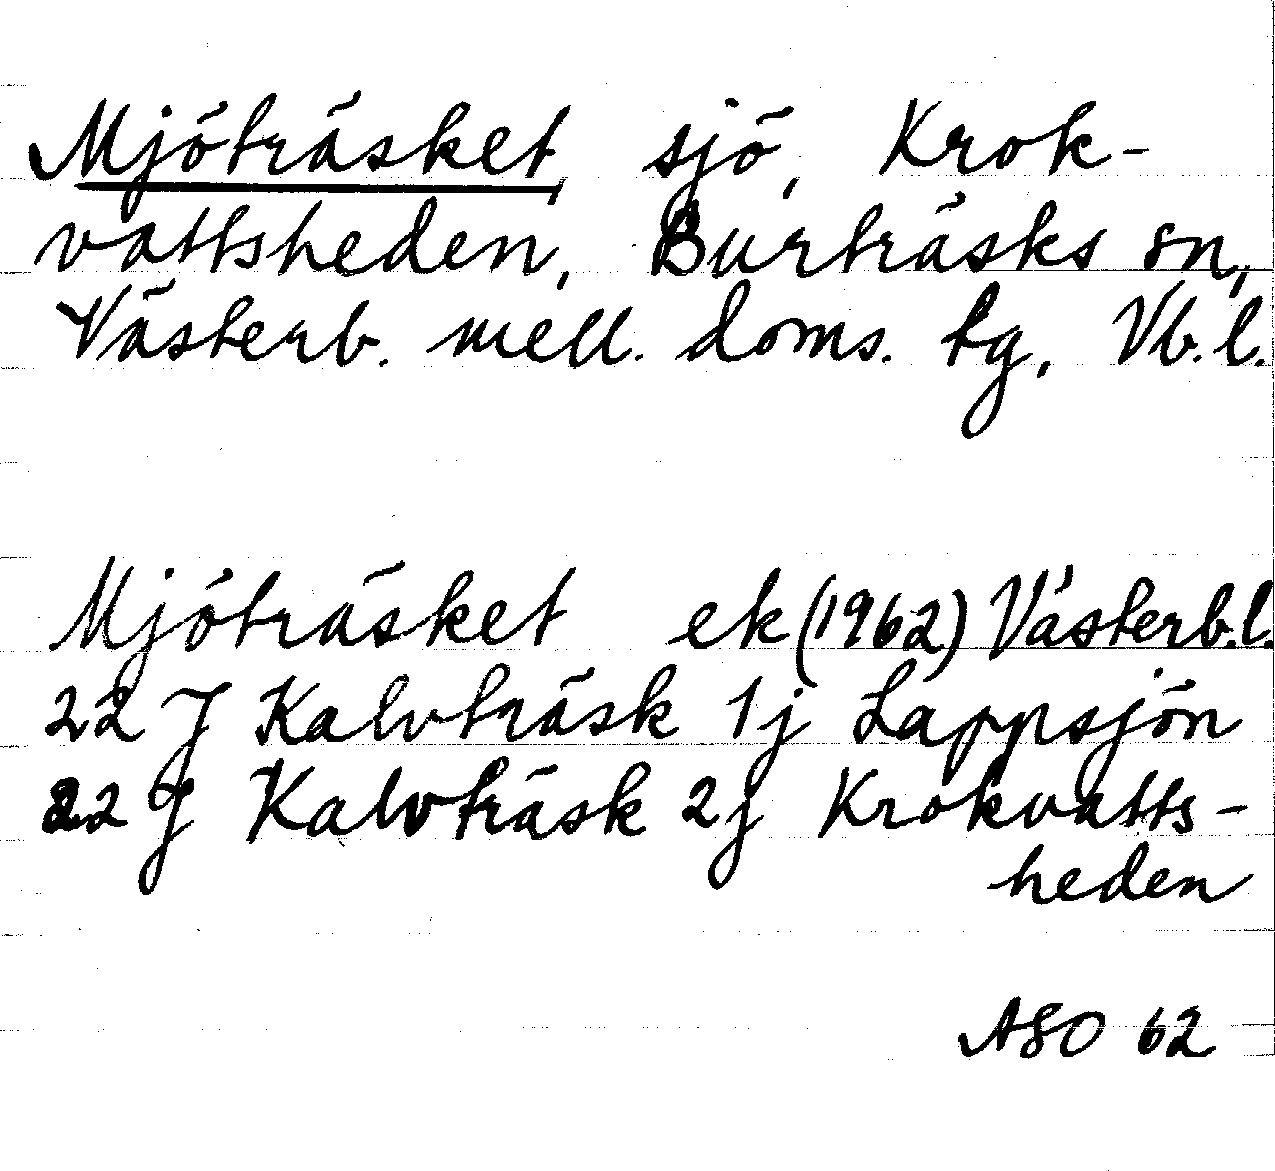 Mjöträsket, sjö, Krok-
vattsheden, Burträsks sn,
Västerb. mell. doms. tg, Vb.l.
Mjöträsket ek (1962) Västerb.l.
22 J Kalvträsk 1j Lappsjön
22 J Kalvträsk 2j Krokvatts-
heden
ASO 62